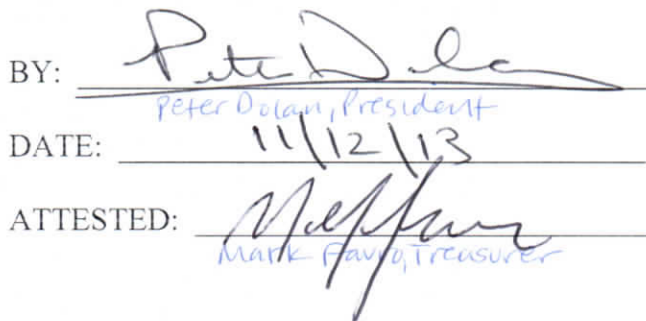 BY: Peter Dolan
Peter Dolan, President
DATE: 11/12/13
ATTESTED:
Mark Favro, Treasurer